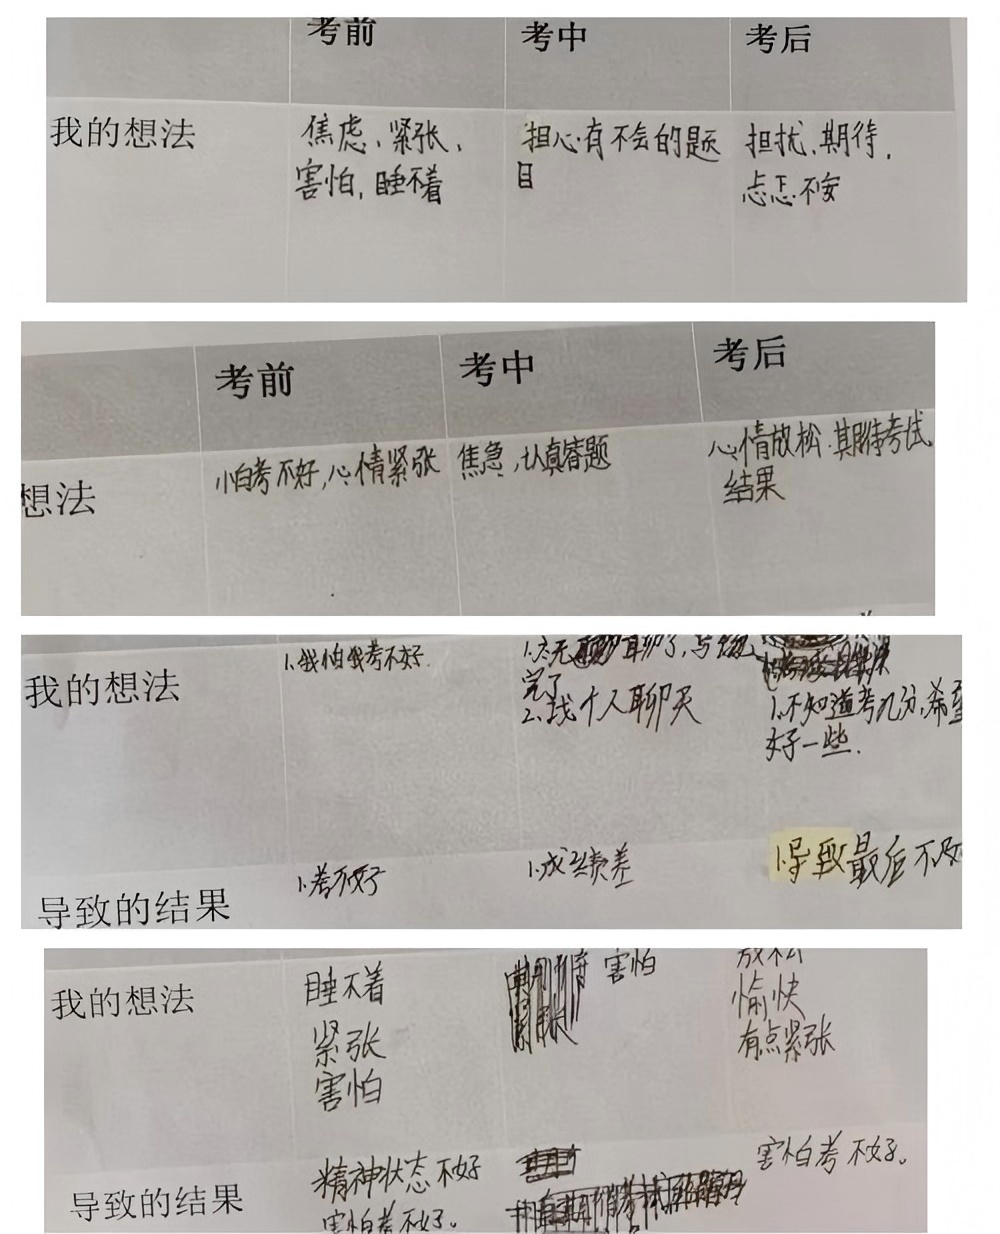 考前 考中 考后
我的想法
焦虑、紧张、
害怕，睡不着
担心有不会的题
目
担扰、期待，
忐忑不安
考前 考中 考后
想法
怕考不好，心情紧张
焦急，认真答题
心情放松.期待考试
结果
我的想法
1.我怕我考不好.
完了
2.找个人聊天
1.不知道考几分,希望
好一些.
导致的结果
1.考不好
1.成绩差
1.导致最后不好
我的想法
睡不着
紧张
害怕
害怕
放松
愉快
有点紧张
导致的结果
精神状态不好
害怕考不好。
害怕考不好。